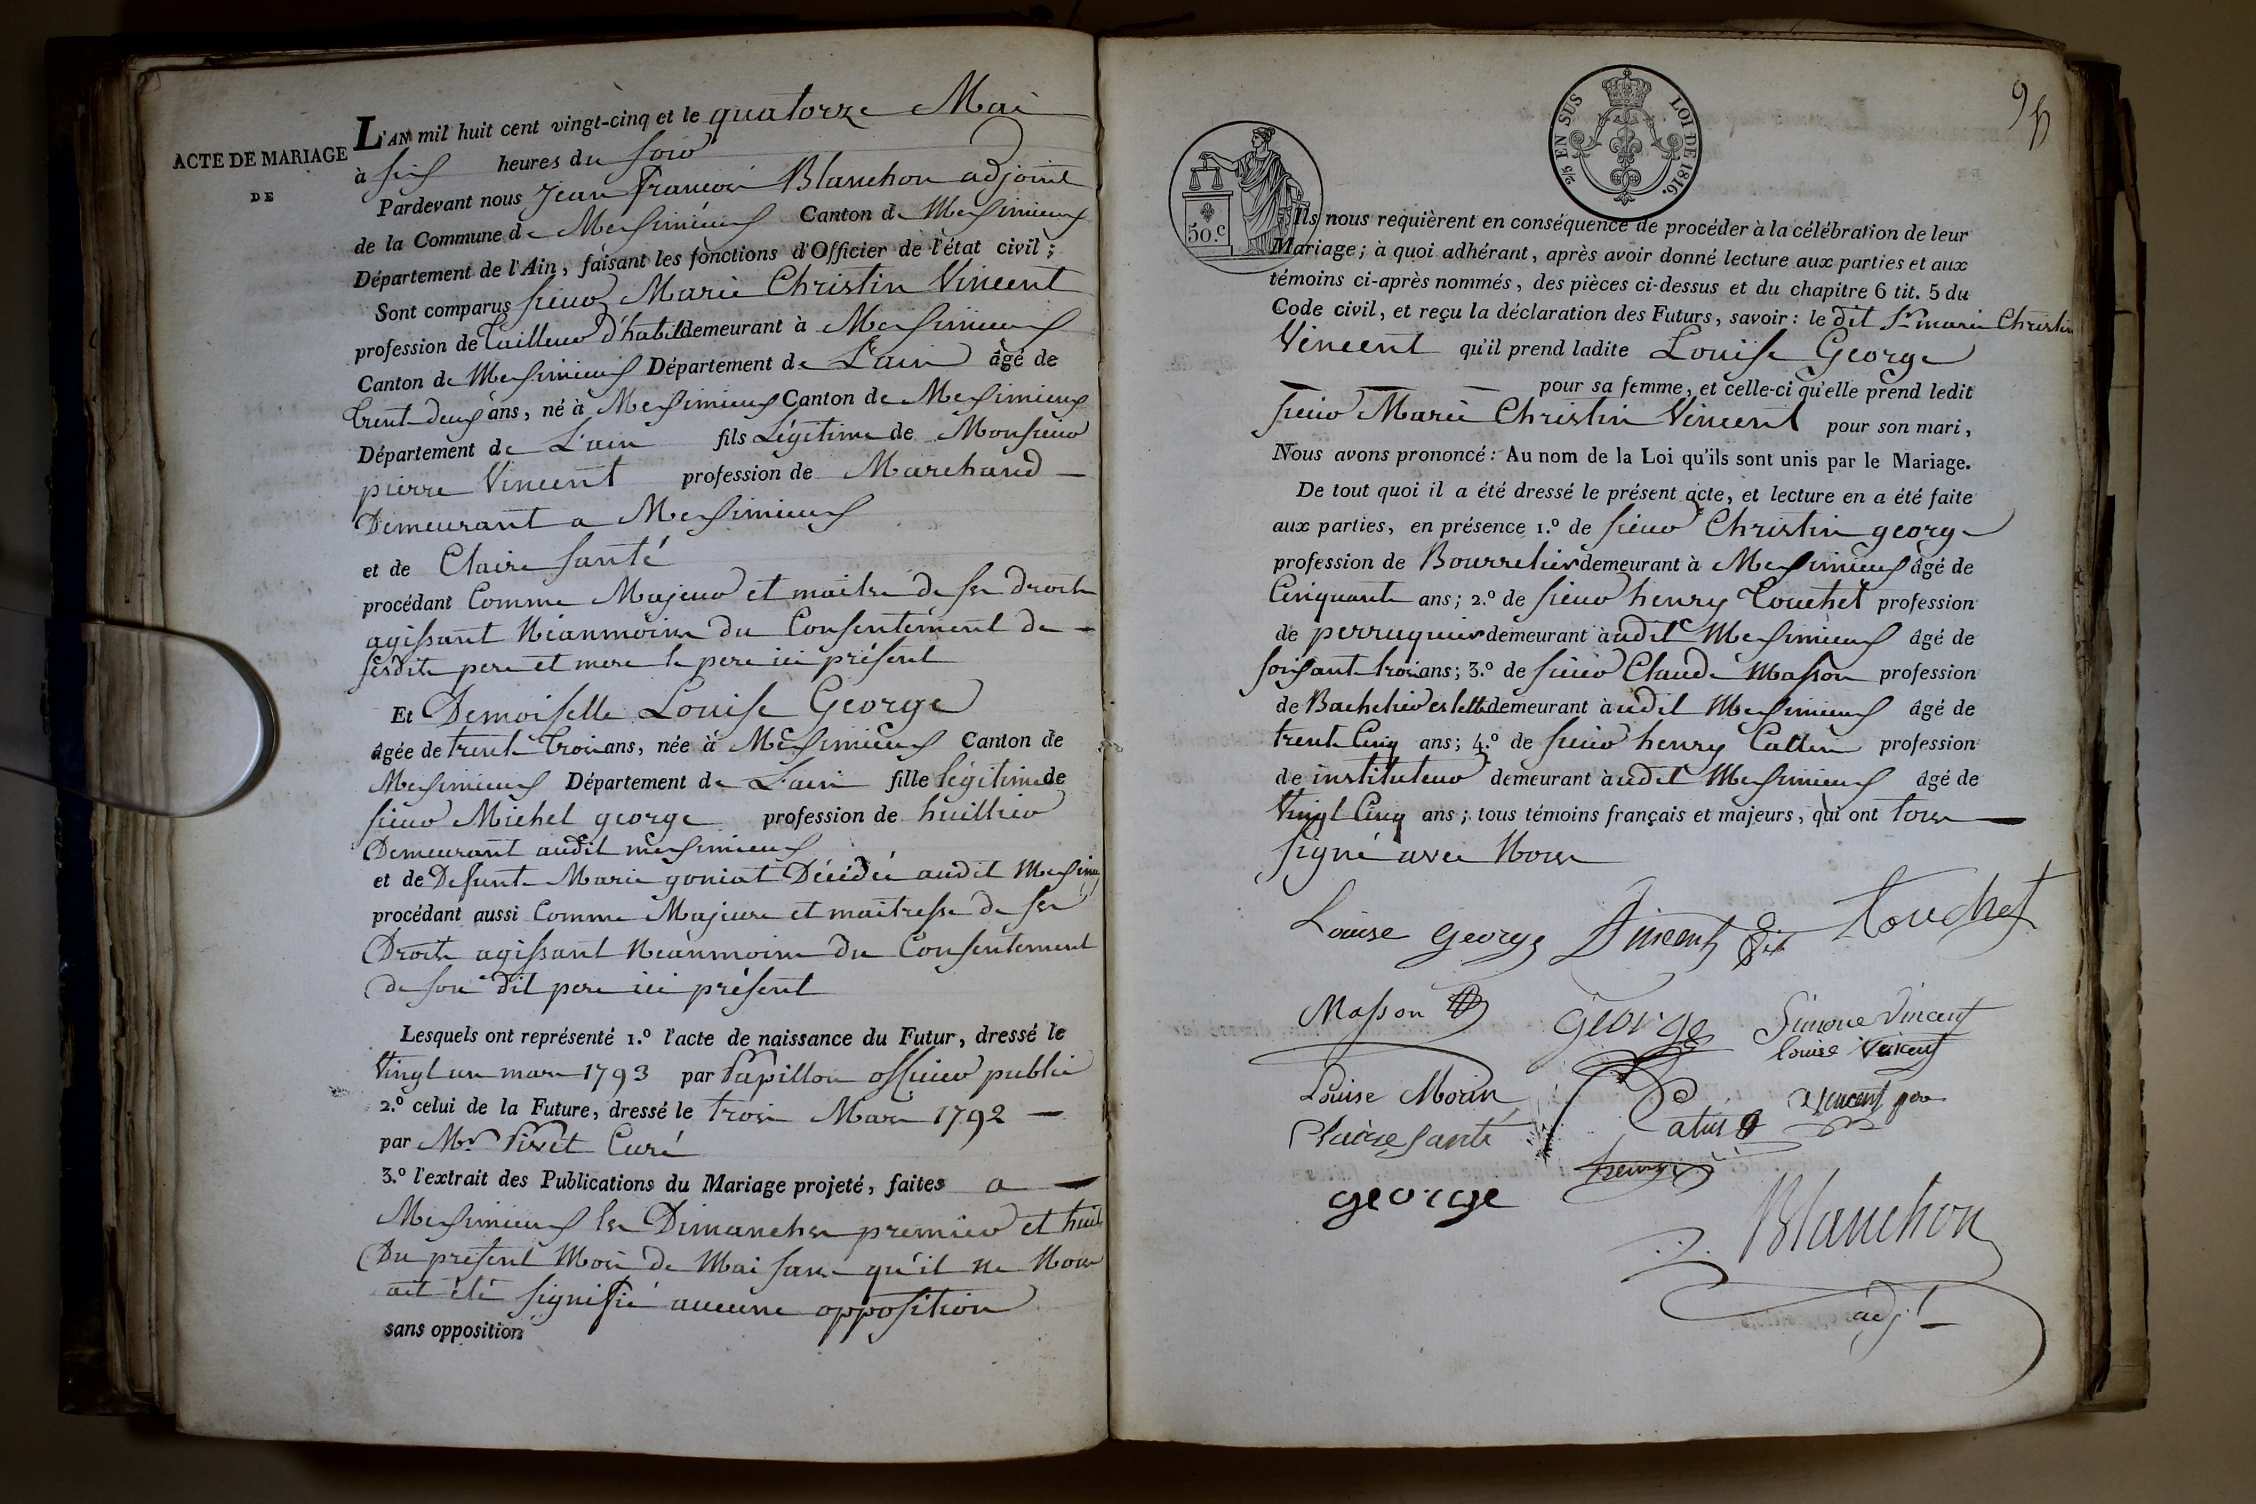 ACTE DE MARIAGE
DE
L'AN mil huit cent vingt-cinq et le quatorze Mai
à six heures du soir
Pardevant nous jean françois Blanchon adjoint
de la Commune de Meximieux Canton de Meximieux
Département de l'Ain, faisant les fonctions d'Officier de l'état civil;
Sont comparus sieur Marie Christin Vincent
profession de Tailleur d'habit demeurant à Meximieux
Canton de Meximieux Département de L'ain âgé de
trente deux ans, né à Meximieux Canton de Meximieux
Département de L'ain fils Légitime de Monsieur
pierre Vincent profession de Marchand —
Demeurant a Meximieux
et de Claire Santé
procédant Comme Majeur et maitre de ses droits
agissant Néanmoins du Consentément de —
sesdits pere et mere le pere ici présent
Et Demoiselle Louise George
âgée de trente trois ans, née à Meximieux Canton de
Meximieux Département de L'ain fille légitime de
sieur Michel george profession de huillier
Demeurant audit meximieux
et de Defunte Marie goniat Décédée audit Meximx
procédant aussi Comme Majeure et maitresse de ses
Droits agissant Néanmoins du Consentement
de son dit pere ici présent
Lesquels ont représenté 1.º l'acte de naissance du Futur, dressé le
Vingt un mars 1793 par Papillon officier public
2.º celui de la Future, dressé le trois Mars 1792 —
par Mr. Pivet Curé
3.º l'extrait des Publications du Mariage projeté, faites a —
Meximieux les Dimanches premier et huit
Du présent Mois de Mai sans qu'il ne Nous
ait été signifié aucune opposition
sans opposition
95
2/5 EN SUS LOI DE 1816.
50.c
Ils nous requièrent en conséquence de procéder à la célébration de leur
Mariage; à quoi adhérant, après avoir donné lecture aux parties et aux
témoins ci-après nommés, des pièces ci-dessus et du chapitre 6 tit. 5 du
Code civil, et reçu la déclaration des Futurs, savoir: le dit Sr marie Christin
Vincent qu'il prend ladite Louise George
pour sa femme, et celle-ci qu'elle prend ledit
sieur Marie Christin Vincent pour son mari,
Nous avons prononcé: Au nom de la Loi qu'ils sont unis par le Mariage.
De tout quoi il a été dressé le présent acte, et lecture en a été faite
aux parties, en présence 1.º de sieur Christin george
profession de Bourrelier demeurant à Meximieux âgé de
Cinquante ans; 2.º de sieur henry Touchet profession
de perruquier demeurant à udit Meximieux âgé de
soixante trois ans; 3.º de sieur Claude Masson profession
de Bachelier es lettre demeurant à udit Meximieux âgé de
trente Cinq ans; 4.º de sieur henry Cattin profession
de instituteur demeurant à udit Meximieux âgé de
Vingt Cinq ans; tous témoins français et majeurs, qui ont tous —
signé avec Nous
Louise george Vincent fils Touchet
Masson george Simone Vincent
louise Vincent
Louise Morin Catin Vincent pere
Claire Santé
henry
george
Blanchon
adjt